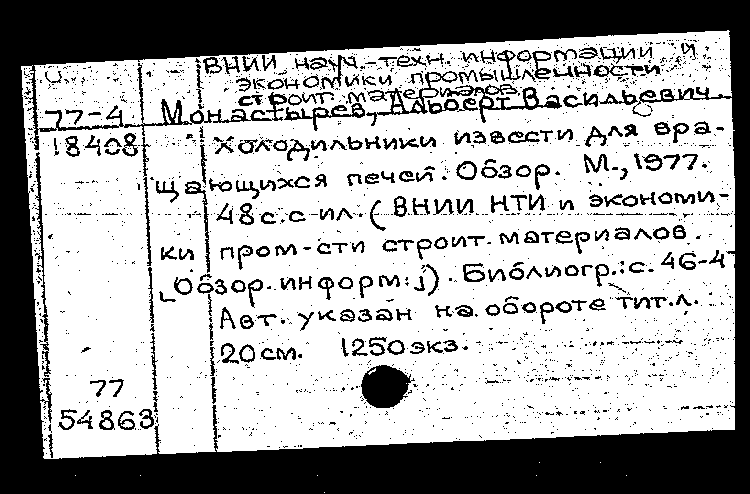 ВНИИ науч.-техн. информации и
экономики промышленности
строит. материалов
77-4 Монастырев, Альберт Васильевич.
18408 Холодильники извести для вра-
щающихся печей. Обзор. М., 1977.
48 с. с ил. (ВНИИ НТИ и экономи-
ки пром-сти строит. материалов.
[Обзор. информ.]). Библиогр.: с. 46-47
Авт. указан на обороте тит. л.
20 см. 1250 экз.
77
54863